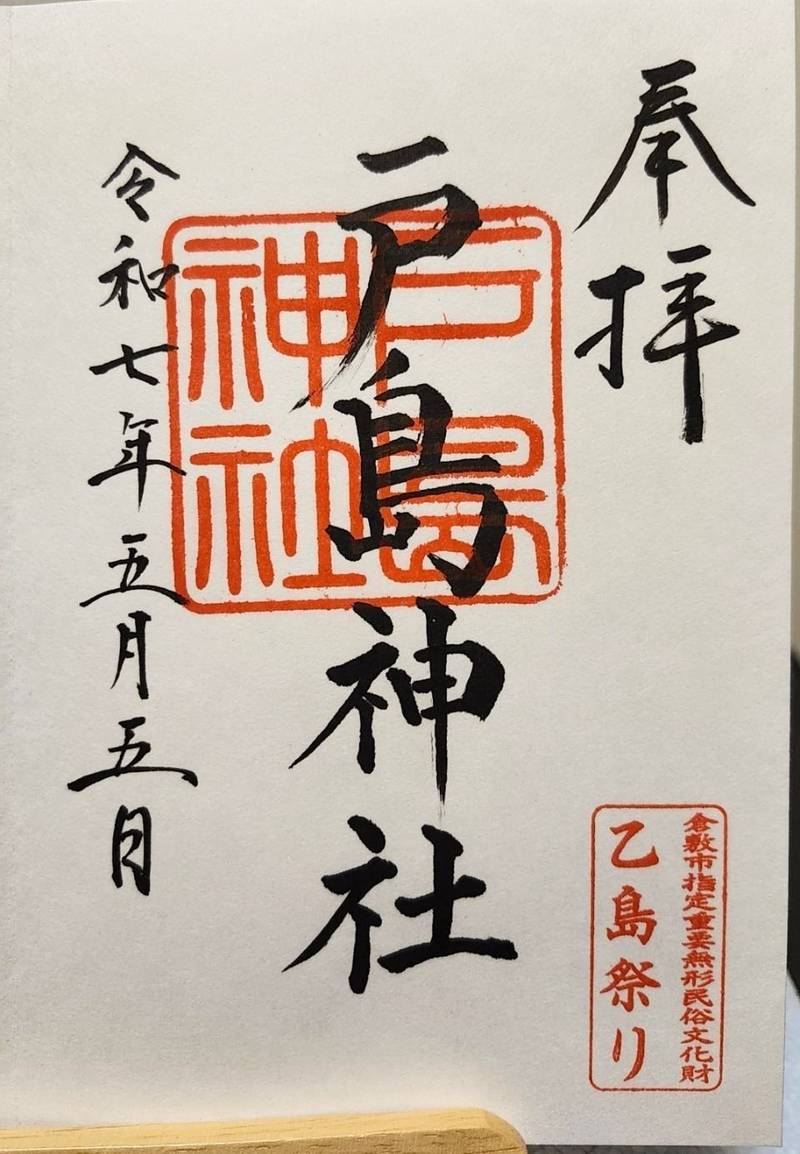 奉拝
戸島神社
戸島
神社
令和七年五月五日
倉敷市指定重要無形民俗文化財
乙島祭り